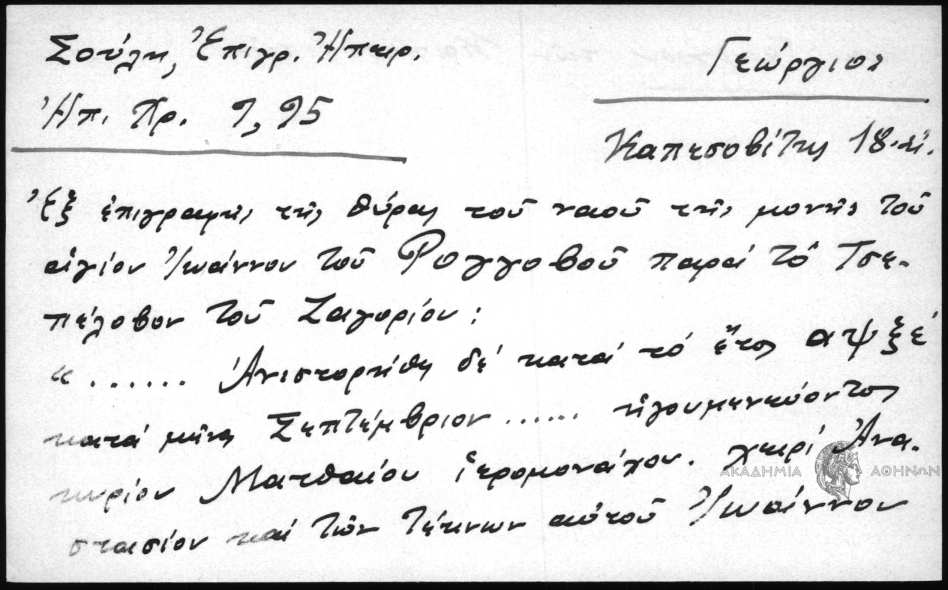 Σούλη, Ἐπιγρ. Ἠπειρ.
Ἠπ. Χρ. 9, 95
Γεώργιος
Καπεσοβίτης 18 αἰ.
Ἐξ ἐπιγραφῆς τῆς θύρας τοῦ ναοῦ τῆς μονῆς τοῦ
ἁγίου Ἰωάννου τοῦ Ρογγοβοῦ παρὰ τὸ Τσε-
πέλοβον τοῦ Ζαγορίου:
«...... Ἀνιστορήθη δὲ κατὰ τὸ ἔτος αψξέ
κατὰ μῆνα Σεπτέμβριον ...... ἡγουμενεύοντος
κυρίου Ματθαίου ἱερομονάχου. χειρὶ Ἀνα-
στασίου καὶ τῶν τέκνων αὐτοῦ Ἰωάννου
ΑΚΑΔΗΜΙΑ ΑΘΗΝΩΝ